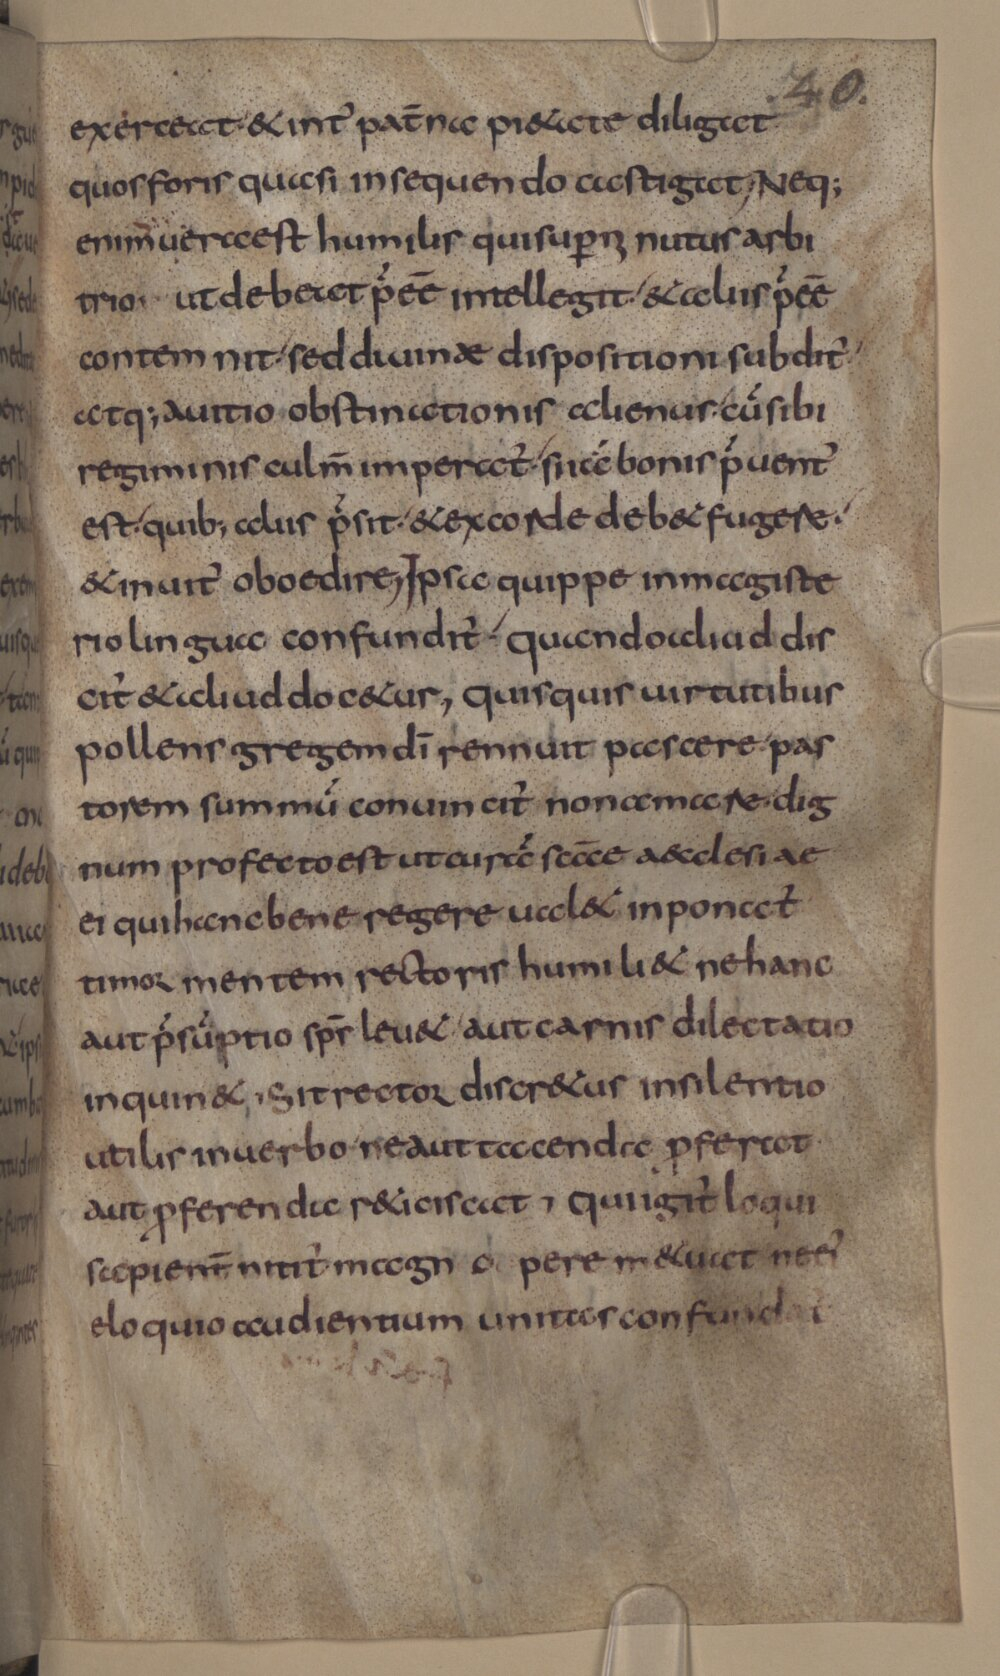 40.
exerceat & int̄ pat̄na pi&ate diligat
quos foris quasi insequendo castigat, Neq;
enim uera est humilis qui supern nutus arbi
trio ut debeat p̄eē intellegit & aluis p̄eē
contemnit sed diuinae dispositioni subdit̄
atq; auitio obstinationis alienus cū sibi
regiminis culm̄ imperat̄ si iā bonis p̄uent̄
est quib; aluis p̄sit & ex corde deb& fugere
& inuit̄ oboedire, Ipsa quippe in magiste
rio lingua confundit̄ Quando aliud dis
cit̄ & aliud doc&ur, Quisquis uirtutibus
pollens gregem dī rennuit pascere pas
torem summū conuincit̄ non amare dig
num profecto est ut curā scāe aecclesiae
ei qui hanc bene regere ual& inponat̄
timor mentem rectoris humili& ne hanc
aut p̄sūptio sp̄s leu& aut carnis dilectatio
inquin&, Sit rector discr&us in silentio
utilis in uerbo ne aut tacenda p̄ferat
aut p̄ferenda r&iciscat, Qui igit̄ loqui
sapient̄ nitit̄ magno pere m&uat ne eī
eloquio audientium unitas confundat